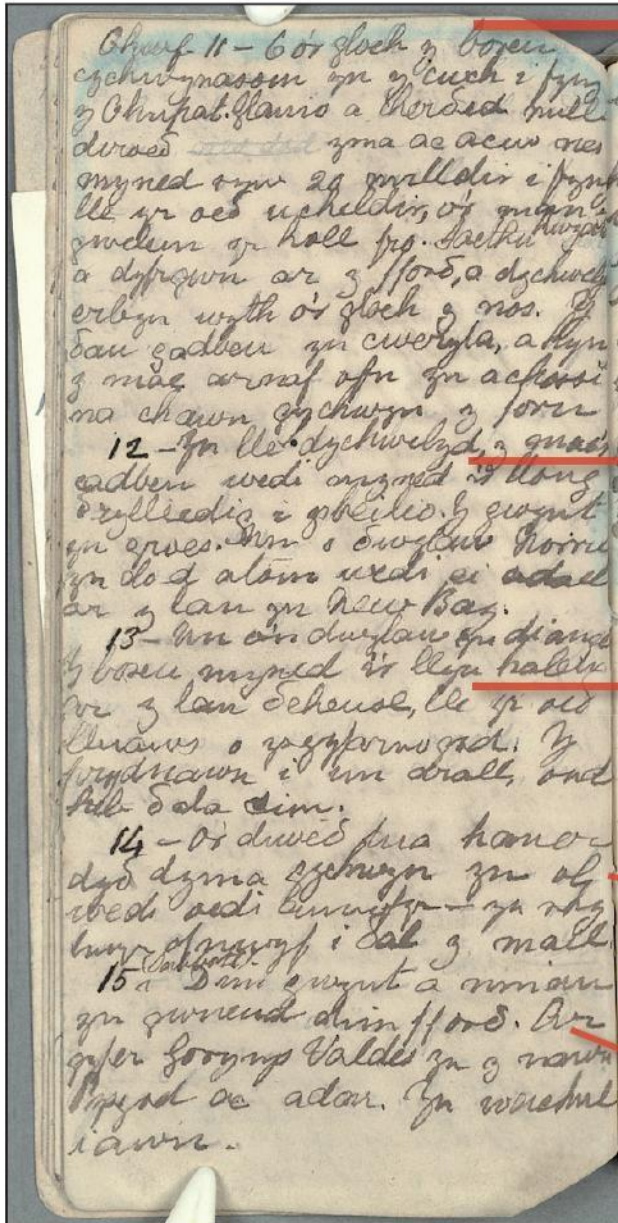 Chwef 11 – 6 o'r gloch y boreu
cychwynasom yn y cwch i fyny
y Chupat. Glanio a cherðed mille
diroeð yma ac acw nes
myned ryw 20 milldir i fyny
lle yr oeð ucheldir, o'r man
gwelem yr holl fro. Saethu hwyaid
a dyfrgwn ar y fforð, a dychwely
erbyn wyth o'r gloch y nos. Y
ðau gadben yn cweryla, a hyn
y mae arnaf ofn yn achosi
na chawn gychwyn y foru
12 – Yn lle dychwelyd, y mae'r
cadben wedi myned i'r llong
ðrylliedig i ysbeilio. Y gwynt
yn groes. Un o ðwylaw Morru
yn dod atom wedi ei adael
ar y lan yn New Bay.
13 – Un o'n dwylaw yn diange
Y boreu myned i'r llyn halen
ar y lan ðeheuol, lle yr oeð
lluaws o ysgyfarnogod. Y
prydnawn i un arall, ond
heb ðala dim.
14 – O'r diweð tua haner
dyð dyma gychwyn yn ol
wedi oedi – yn rhy
i ðal y mail.
15 (Sabbath) Dim gwynt a nniau
yn gwneud dim fforð. Ar
gyfer Gorynys Valdes yn y nawn
Pysgod ac adar. Yn wachul
iawn.